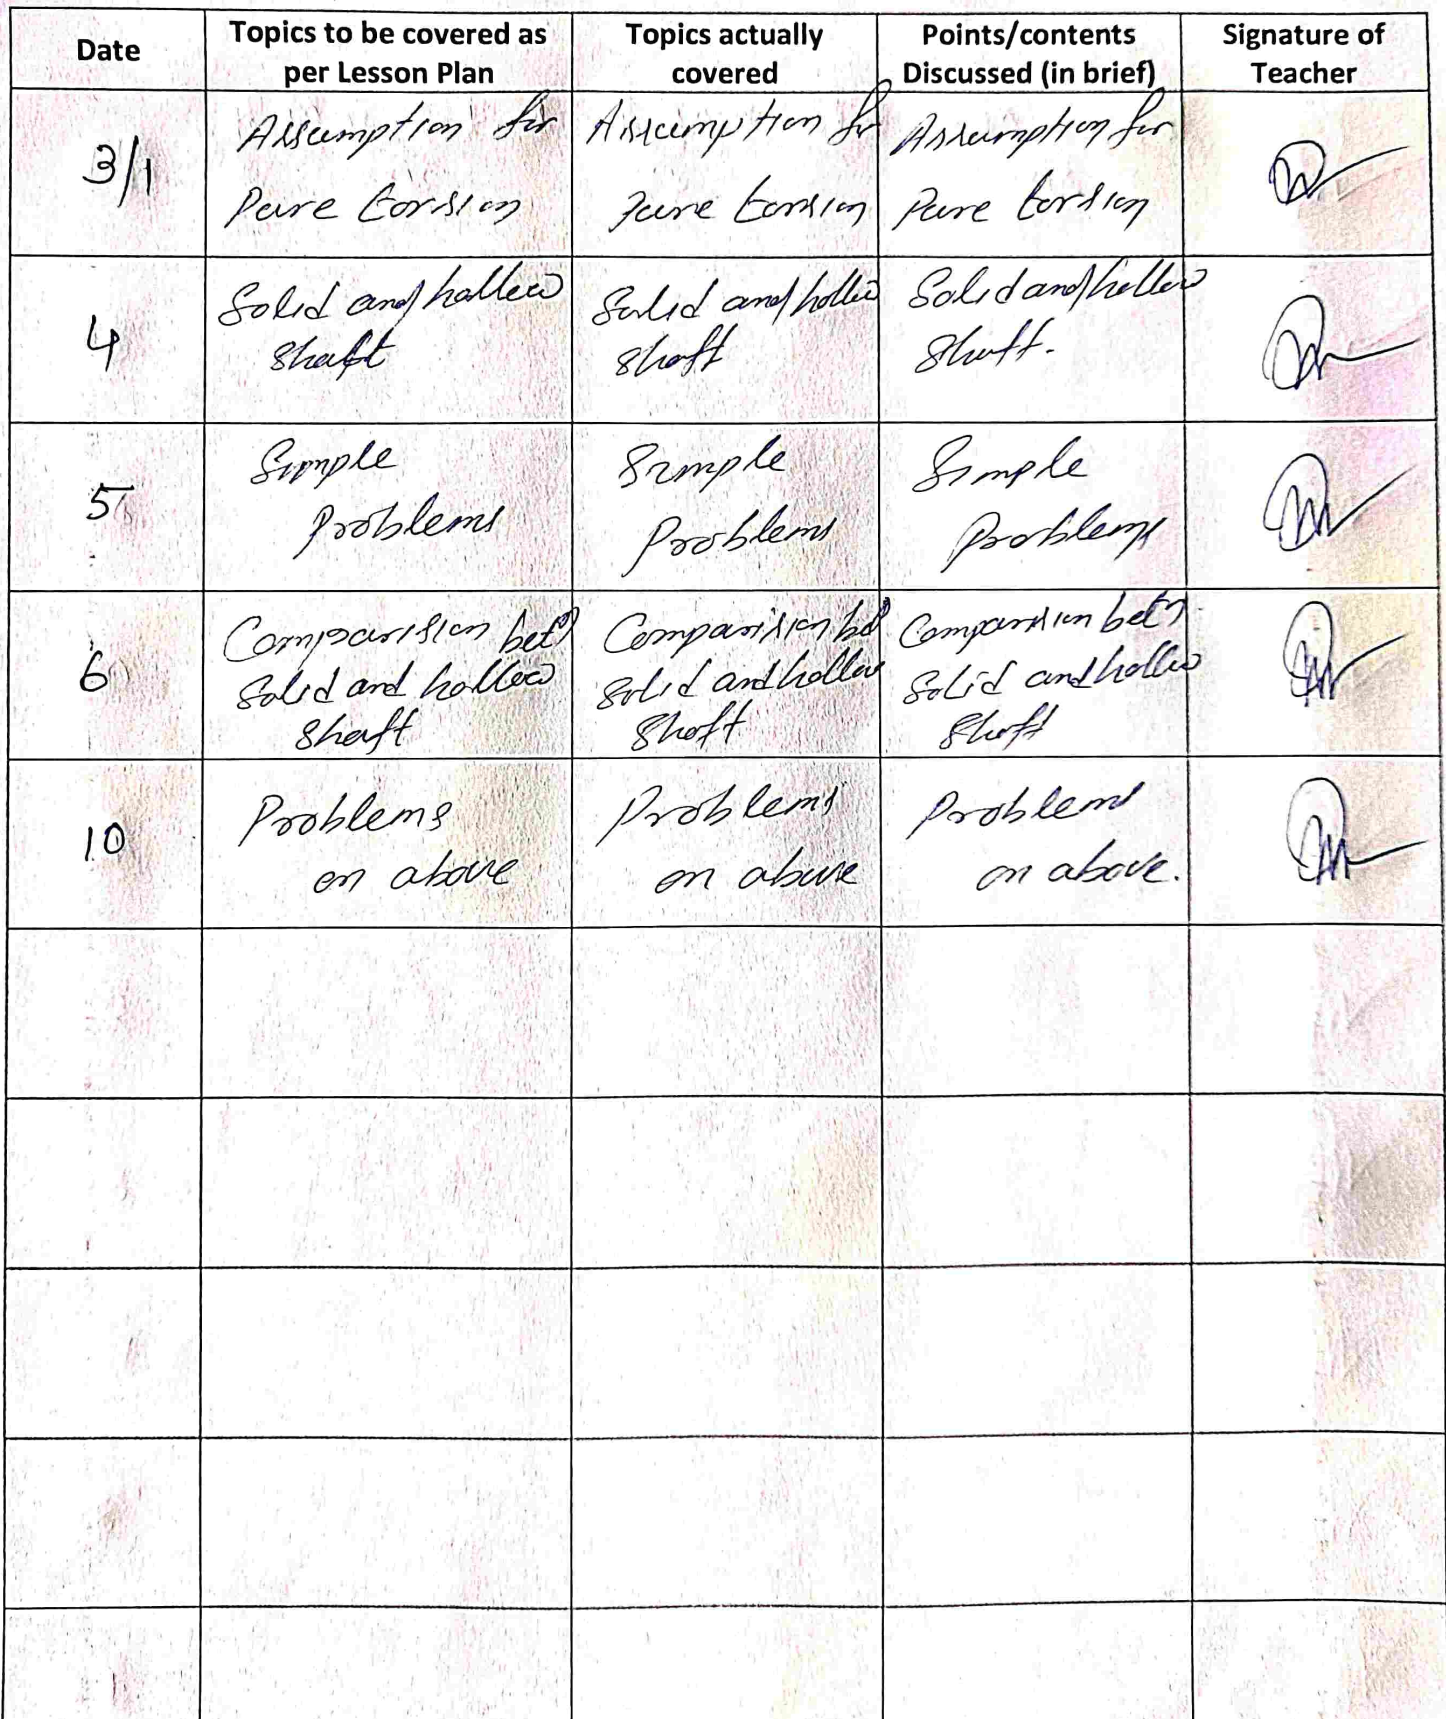 Date
Topics to be covered as
per Lesson Plan
Topics actually
covered
Points/contents
Discussed (in brief)
Signature of
Teacher
3/1
Assumption for
Pure torsion
Assumption for
Pure torsion
Assumption for
Pure torsion
4
Solid and hollow
shaft
Solid and hollow
shaft
Solid and hollow
Shaft.
5
Simple
Problems
Simple
Problems
Simple
Problems
6
Comparision betn
Solid and hollow
shaft
Comparision bet
solid and hollow
shaft
Comparision betn
Solid and hollow
shaft
10
Problems
on above
Problems
on above
Problems
on above.